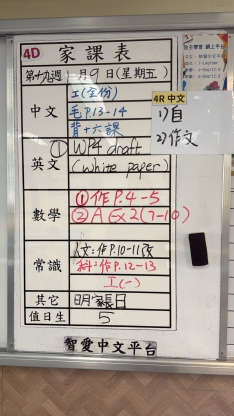 4D 家課表
第十九週 一月9日(星期五)
中文
工(全份)
毛P.13-14
背十六課
英文
① WP4 draft
(White paper)
數學
① 作P.4-5
② A Ex2(7-10)
常識
人文:作P.10-11改
科:作P.12-13
工(一)
其它 明家長日
值日生 5
智愛中文平台
4R 中文
1)自
2)作文
自主學習 網上平台